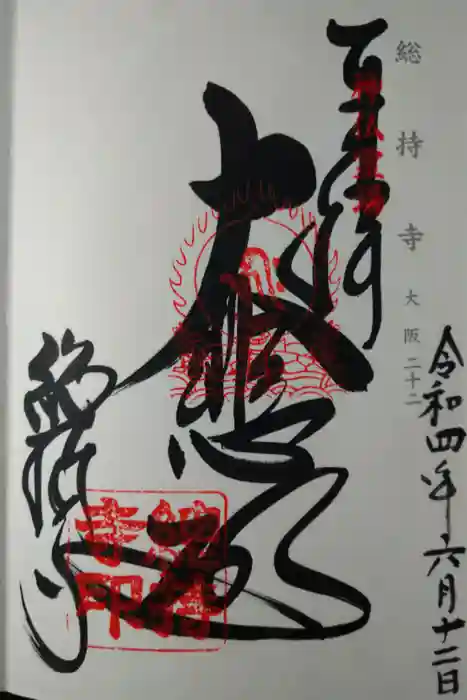 総持寺 大阪二十二
令和四年六月十二日
奉拝
大悲殿
総持寺
総持寺印